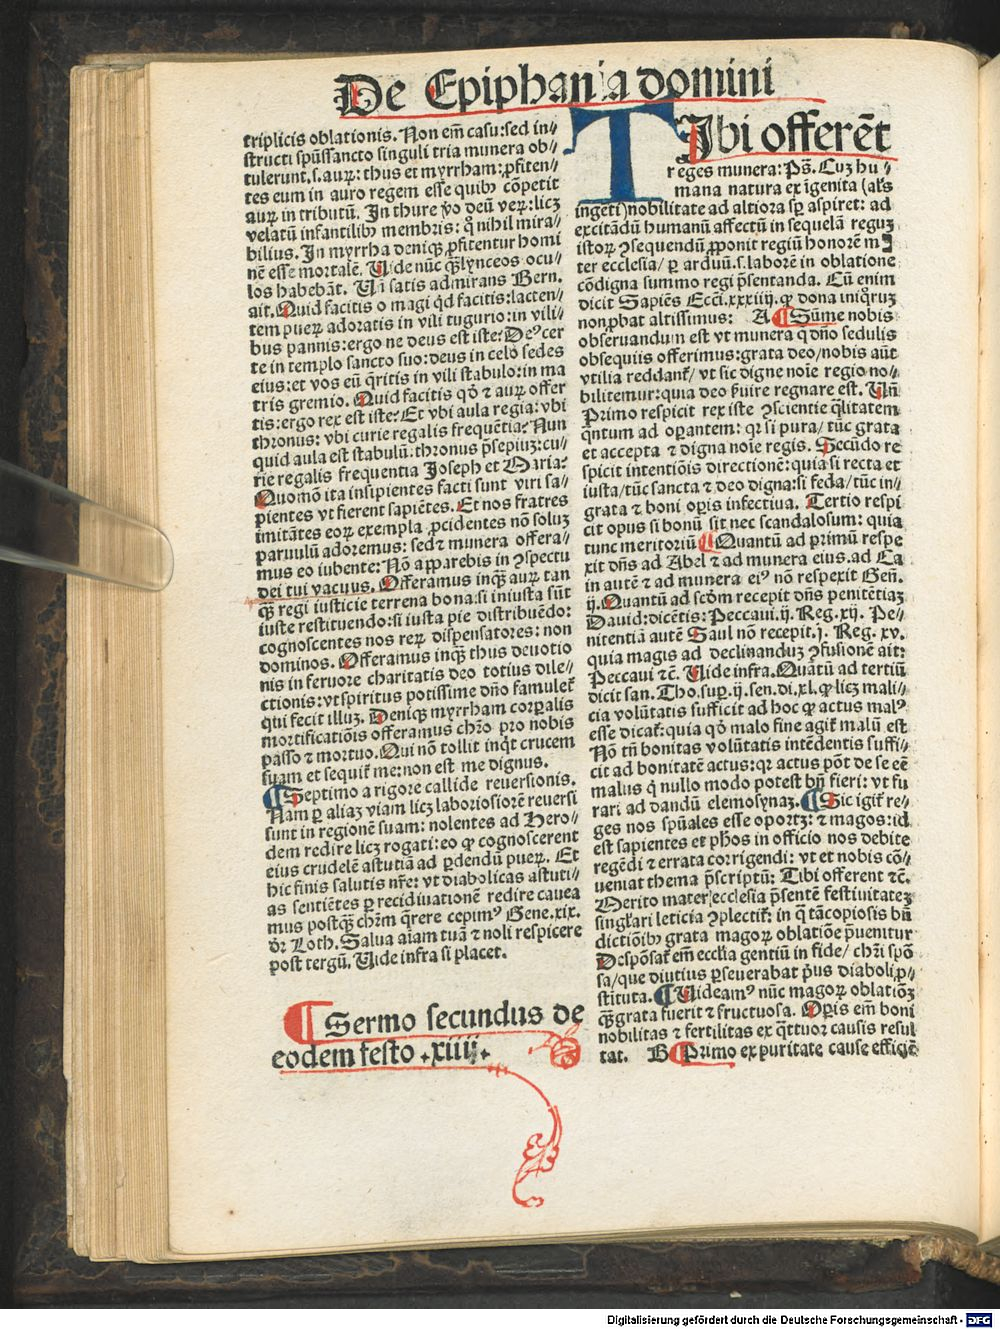 De Epiphania domini
triplicis oblationis. Non em̄ casu: sed in⸗
structi spūssancto singuli tria munera ob⸗
tulerunt, s. auꝝ: thus et myrrham: ꝓfiten⸗
tes eum in auro regem esse quibꝰ cōpetit
auꝝ in tributū. In thure ꝟo deū veꝝ: licꝫ
velatū infantilibꝰ membris: q̊ nihil mira⸗
bilius. In myrrha deniqꝫ ꝓfitentur homi
nē esse mortalē. Uide nūc q̄ꝫ lynceos ocu⸗
los habebāt. Uñ satis admirans Bern.
ait. Quid facitis o magi qd̓ facitis: lacten⸗
tem pueꝝ adoratis in vili tugurio: in vili⸗
bus pannis: ergo ne deus est iste: Deꝰ cer
te in templo sancto suo: deus in celo sedes
eius: et vos eū q̄ritis in vili stabulo: in ma
tris gremio. Quid facitis qd̓ ⁊ auꝝ offer
tis: ergo rex est iste: Et vbi aula regia: vbi
thronus: vbi curie regalis frequētia: Nun
quid aula est stabulū: thronus p̄sepiuꝫ: cu⸗
rie regalis frequentia Joseph et Maria:
Quomō ita insipientes facti sunt viri sa⸗
pientes vt fierent sapiētes. Et nos fratres
imitātes eoꝝ exempla ꝓcidentes nō soluꝫ
paruulū adoremus: sed ⁊ munera offera⸗
mus eo iubente: Nō apparebis in ꝯspectu
dei tui vacuus. Offeramus inqꝫ auꝝ tan
qꝫ regi iusticie terrena bona: si iniusta sūt
iuste restituendo: si iusta pie distribuēdo:
cognoscentes nos reꝝ dispensatores: non
dominos. Offeramus inqꝫ thus deuotio
nis in feruore charitatis deo totius dile⸗
ctionis: vt spiritus potissime dn̄o famuleť
qui fecit illuꝫ. Deniqꝫ myrrham corꝑalis
mortificatiōis offeramus chr̄o pro nobis
passo ⁊ mortuo. Qui nō tollit inq̇t crucem
suam et sequiť me: non est me dignus.
¶ Septimo a rigore callide reuersionis.
Nam ꝑ aliaꝫ viam licꝫ laboriosiorē reuersi
sunt in regionē suam: nolentes ad Hero⸗
dem redire licꝫ rogati: eo ꝙ cognoscerent
eius crudelē astutiā ad ꝑdendū pueꝝ. Et
hic finis salutis nr̄e: vt diabolicas astuti⸗
as sentiētes ꝑ recidiuationē redire cauea
mus postqꝫ chr̄m q̄rere cepimꝰ Gene. xix.
dr̄ Loth. Salua aīam tuā ⁊ noli respicere
post tergū. Uide infra si placet.
¶ Sermo secundus de
eodem festo .xiiij.
TIbi offerēt
reges munera: Ps̄. Cuꝫ hu⸗
mana natura ex īgenita (al̓s
ingeti) nobilitate ad altiora sꝑ aspiret: ad
excitādū humanū affectū in sequelā reguꝫ
istoꝝ ꝯsequendū ꝓponit regiū honorē m
ter ecclesia/ ꝑ arduū. s. laborē in oblatione
cōdigna summo regi p̄sentanda. Cū enim
dicit Sapiēs Ecci. xxxiiij. ꝙ dona iniq̊ruꝫ
non ꝓbat altissimus: A ¶ Sūme nobis
obseruandum est vt munera q̄ dn̄o sedulis
obsequiis offerimus: grata deo/ nobis aūt
vtilia reddanť/ vt sic digne noīe regio no⸗
bilitemur: quia deo ẜuire regnare est. Uñ
Primo respicit rex iste ꝯscientie q̄litatem
q̄ntum ad oꝑantem: qꝛ si pura/ tūc grata
et accepta ⁊ digna noīe regis. Secūdo re
spicit intentiōis directionē: quia si recta et
iusta/ tūc sancta ⁊ deo digna: si feda/ tūc in⸗
grata ⁊ boni oꝑis infectiua. Tertio respi
cit opus si bonū sit nec scandalosum: quia
tunc meritoriū ¶ Quantū ad primū respe
xit dn̄s ad Abel ⁊ ad munera eius. ad Ca
in autē ⁊ ad munera eiꝰ nō respexit Geñ.
ij. Quantū ad scd̓m recepit dn̄s penitētiaꝫ
Dauid: dicētis: Peccaui. ij. Reg. xij. Pe⸗
nitentia autē Saul nō recepit. j. Reg. xv.
quia magis ad declinanduꝫ ꝯfusionē ait:
Peccaui ⁊c̄. Uide infra. Quātū ad tertiū
dicit san. Tho. suꝑ. ij. sen. di. xl. ꝙ licꝫ mali⸗
cia volūtatis sufficit ad hoc ꝙ actus malꝰ
esse dicať: quia qd̓ malo fine agiť malū est
Nō tn̄ bonitas volūtatis intēdentis suffi⸗
cit ad bonitatē actus: qꝛ actus pōt de se eē
malus q̇ nullo modo potest bn̄ fieri: vt fu
rari ad dandū elemosynaꝫ. ¶ Sic igiť re⸗
ges nos spūales esse oportꝫ: ⁊ magos: id
est sapientes et ph̄os in officio nos debite
regēdi ⁊ errata corrigendi: vt et nobis cō⸗
ueniat thema p̄scriptū: Tibi offerent ⁊c̄.
Merito mater ecclesia p̄sentē festiuitateꝫ
singl̓ari leticia ꝯplectiť: in q̄ tā copiosis bn̄
dictiōibꝰ grata magoꝝ oblatiōe p̄uenitur
Despōsať em̄ ecclīa gentiū in fide/ chr̄i spō
sa/ que diutius ꝑseuerabat pꝰus diaboli ꝓ⸗
stituta. ¶ Uideamꝰ nūc magoꝝ oblatiōꝫ
qꝫ grata fuerit ⁊ fructuosa. Oꝑis em̄ boni
nobilitas ⁊ fertilitas ex q̄ttuor causis resul
tat. B ¶ Primo ex puritate cause efficiē
Digitalisierung gefördert durch die Deutsche Forschungsgemeinschaft - DFG